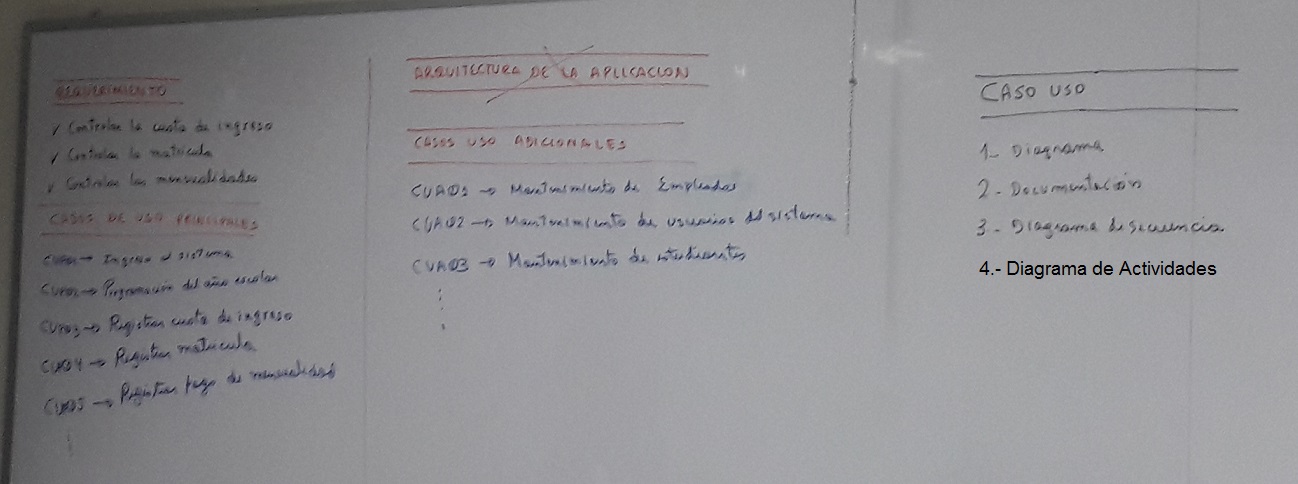 REQUERIMIENTO
✓ Controlar la cuota de ingreso
✓ Controlar la matricula
✓ Controlar las mensualidades
CASOS DE USO PRINCIPALES
→ Ingreso al sistema
→ Programación del año escolar
→ Registrar cuota de ingreso
→ Registrar matricula
→ Registrar pago de mensualidad
ARQUITECTURA DE LA APLICACION
CASOS USO ADICIONALES
CUAD1 → Mantenimiento de Empleados
CUAD2 → Mantenimiento de usuarios del sistema
CUAD3 → Mantenimiento de estudiantes
CASO USO
1- Diagrama
2- Documentación
3- Diagrama de secuencia
4.- Diagrama de Actividades